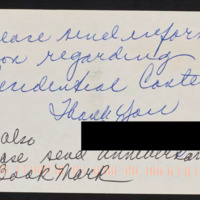 lease send inform
ion regarding
esidential Caste
Thank You
also
ase send anniversar
Book Mark